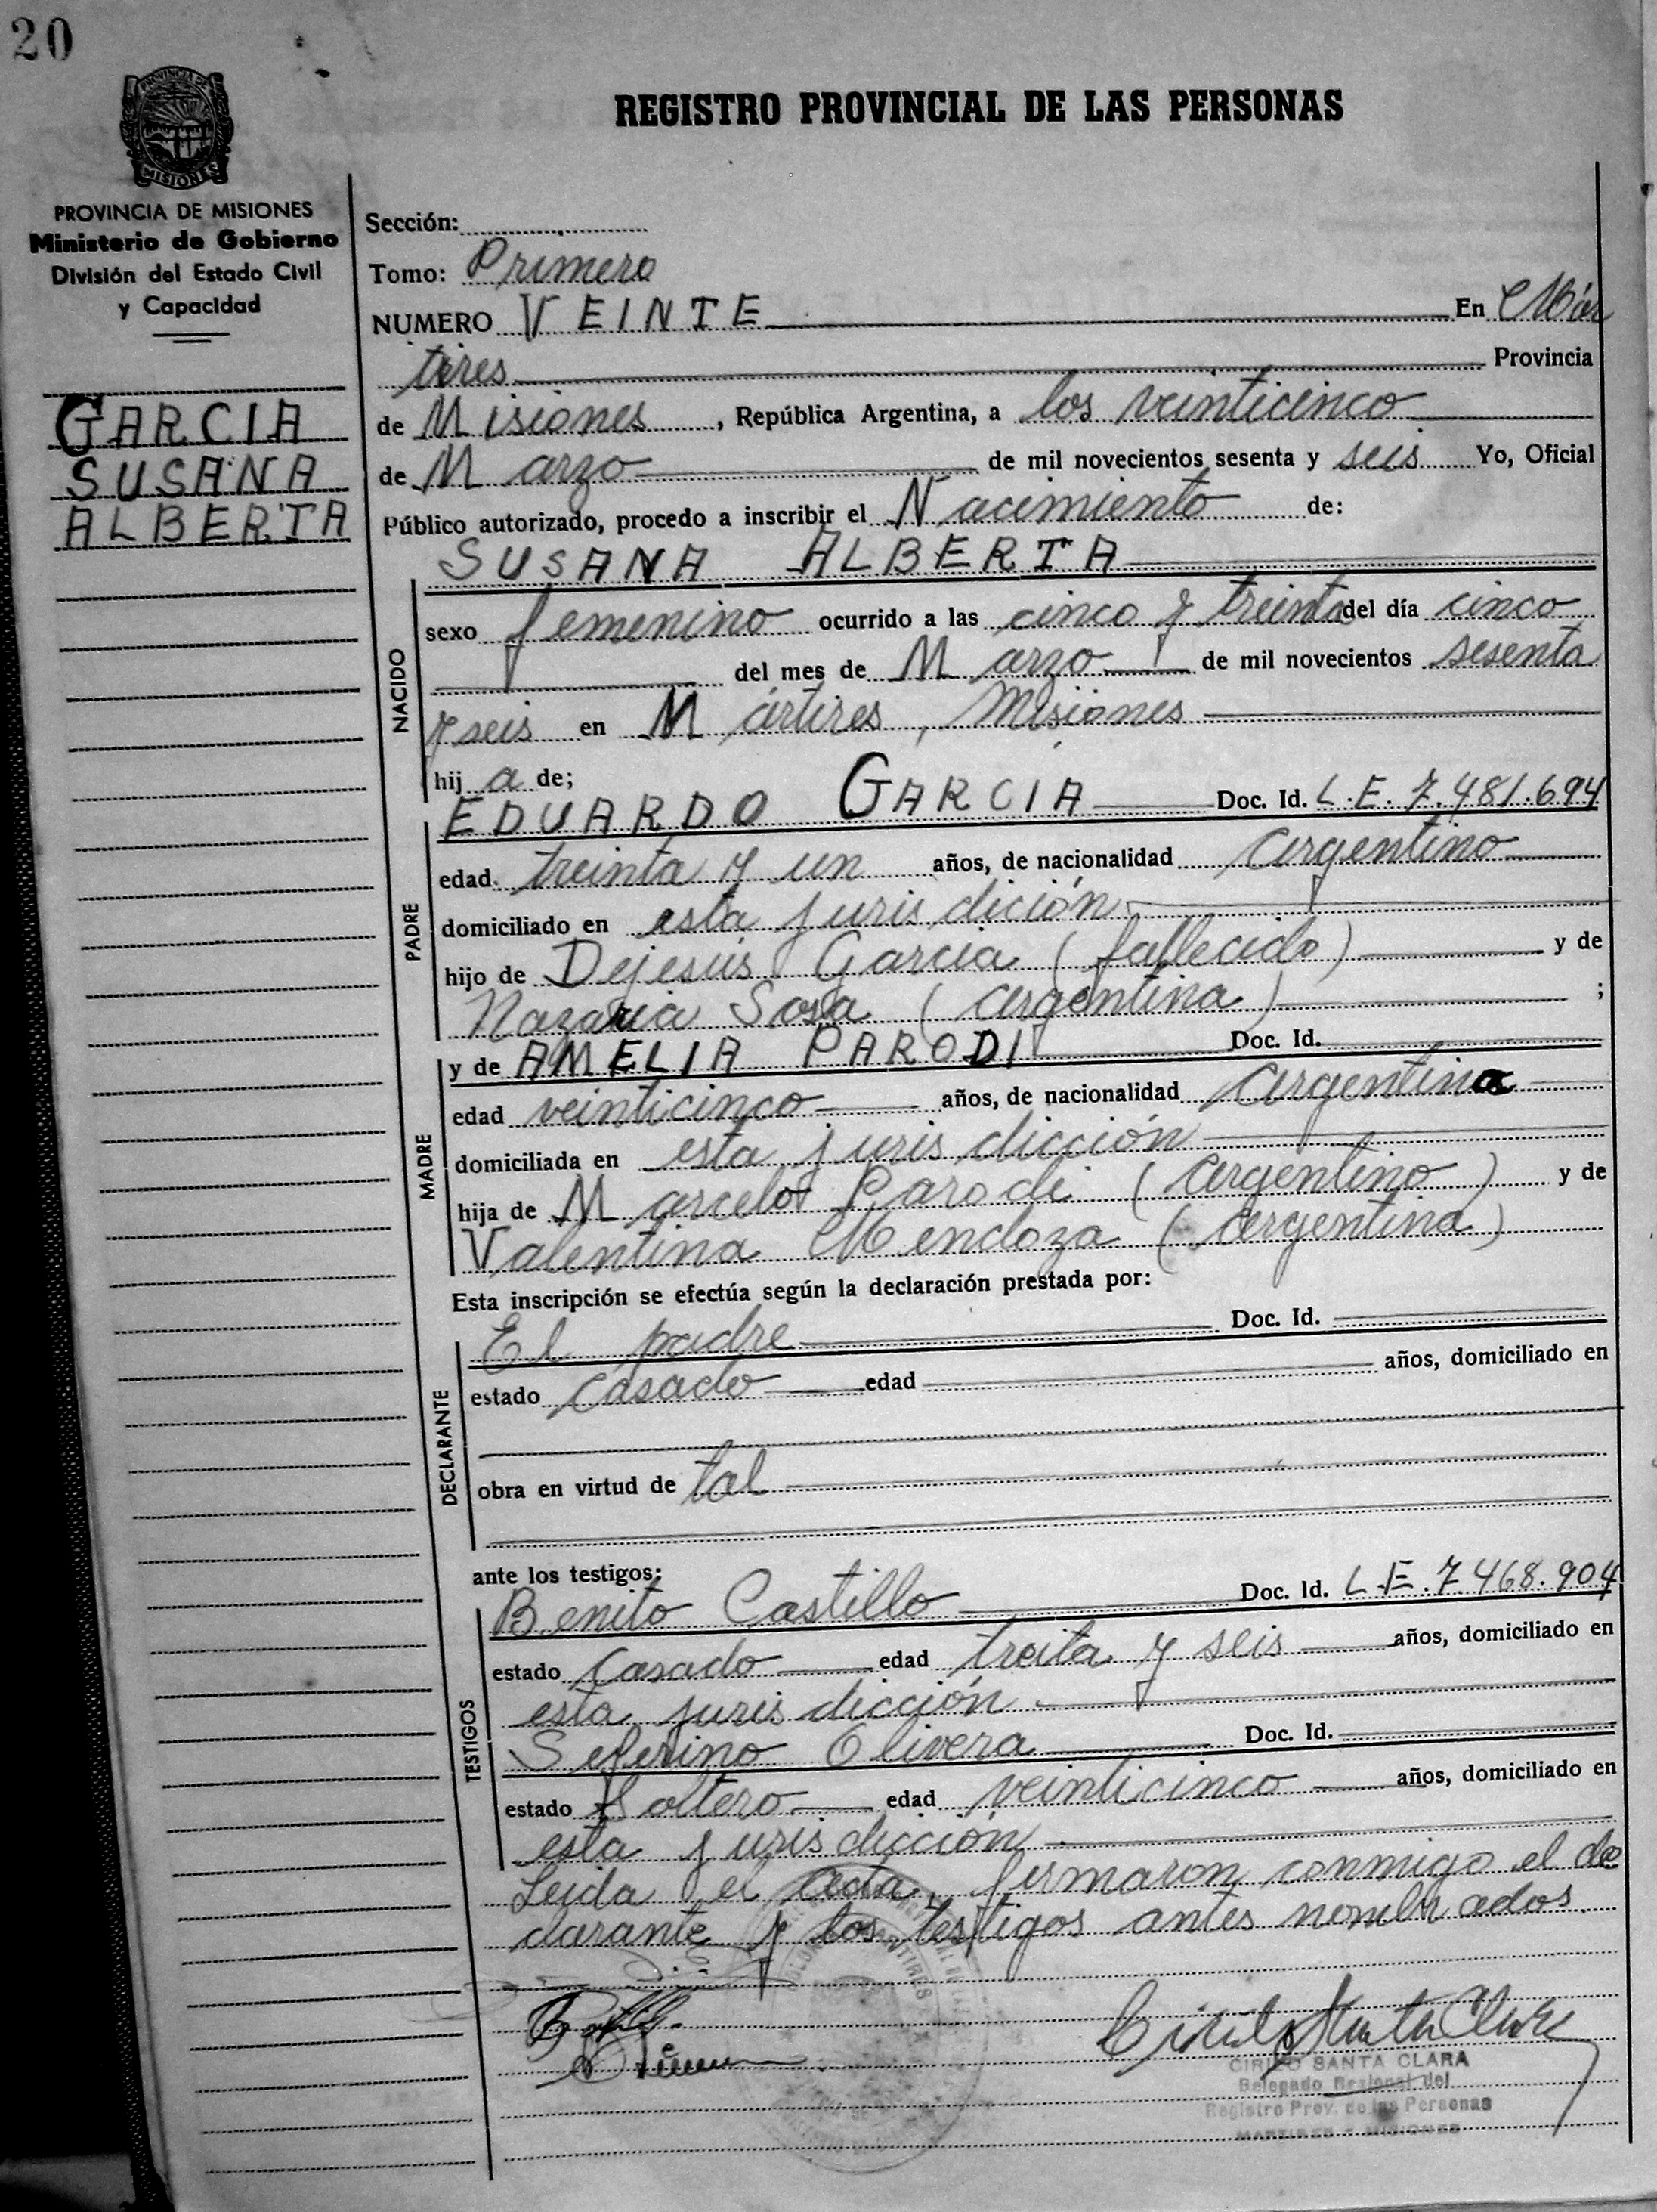 20
PROVINCIA DE
MISIONES
REGISTRO PROVINCIAL DE LAS PERSONAS
PROVINCIA DE MISIONES
Ministerio de Gobierno
División del Estado Civil
y Capacidad
GARCIA
SUSANA
ALBERTA
Sección:
Tomo: Primero
NUMERO VEINTE En Már
tires Provincia
de Misiones, República Argentina, a los veinticinco
de Marzo de mil novecientos sesenta y seis Yo, Oficial
Público autorizado, procedo a inscribir el Nacimiento de:
SUSANA ALBERTA
NACIDO
sexo femenino ocurrido a las cinco y treinta del día cinco
del mes de Marzo de mil novecientos sesenta
y seis en Mártires, Misiones
hija de;
PADRE
EDUARDO GARCIA Doc. Id. L.E. 7.481.694
edad treinta y un años, de nacionalidad argentino
domiciliado en esta jurisdición
hijo de Dejesús Garcia (fallecido) y de
Nazaria Sosa (argentina) ;
MADRE
y de AMELIA PARODI Doc. Id.
edad veinticinco años, de nacionalidad argentina
domiciliada en esta jurisdicción
hija de Marcelo Parodi (argentino) y de
Valentina Mendoza (argentina)
Esta inscripción se efectúa según la declaración prestada por:
DECLARANTE
El padre Doc. Id.
estado casado edad años, domiciliado en
obra en virtud de tal
ante los testigos:
TESTIGOS
Benito Castillo Doc. Id. L.E. 7.468.904
estado casado edad treita y seis años, domiciliado en
esta jurisdicción
Seferino Olivera Doc. Id.
estado soltero edad veinticinco años, domiciliado en
esta jurisdicción
Leida el acta, firmaron conmigo el de
clarante y los testigos antes nombrados
CIRILO SANTA CLARA
Delegado Regional del
Registro Prov. de las Personas
MARTIRES - MISIONES